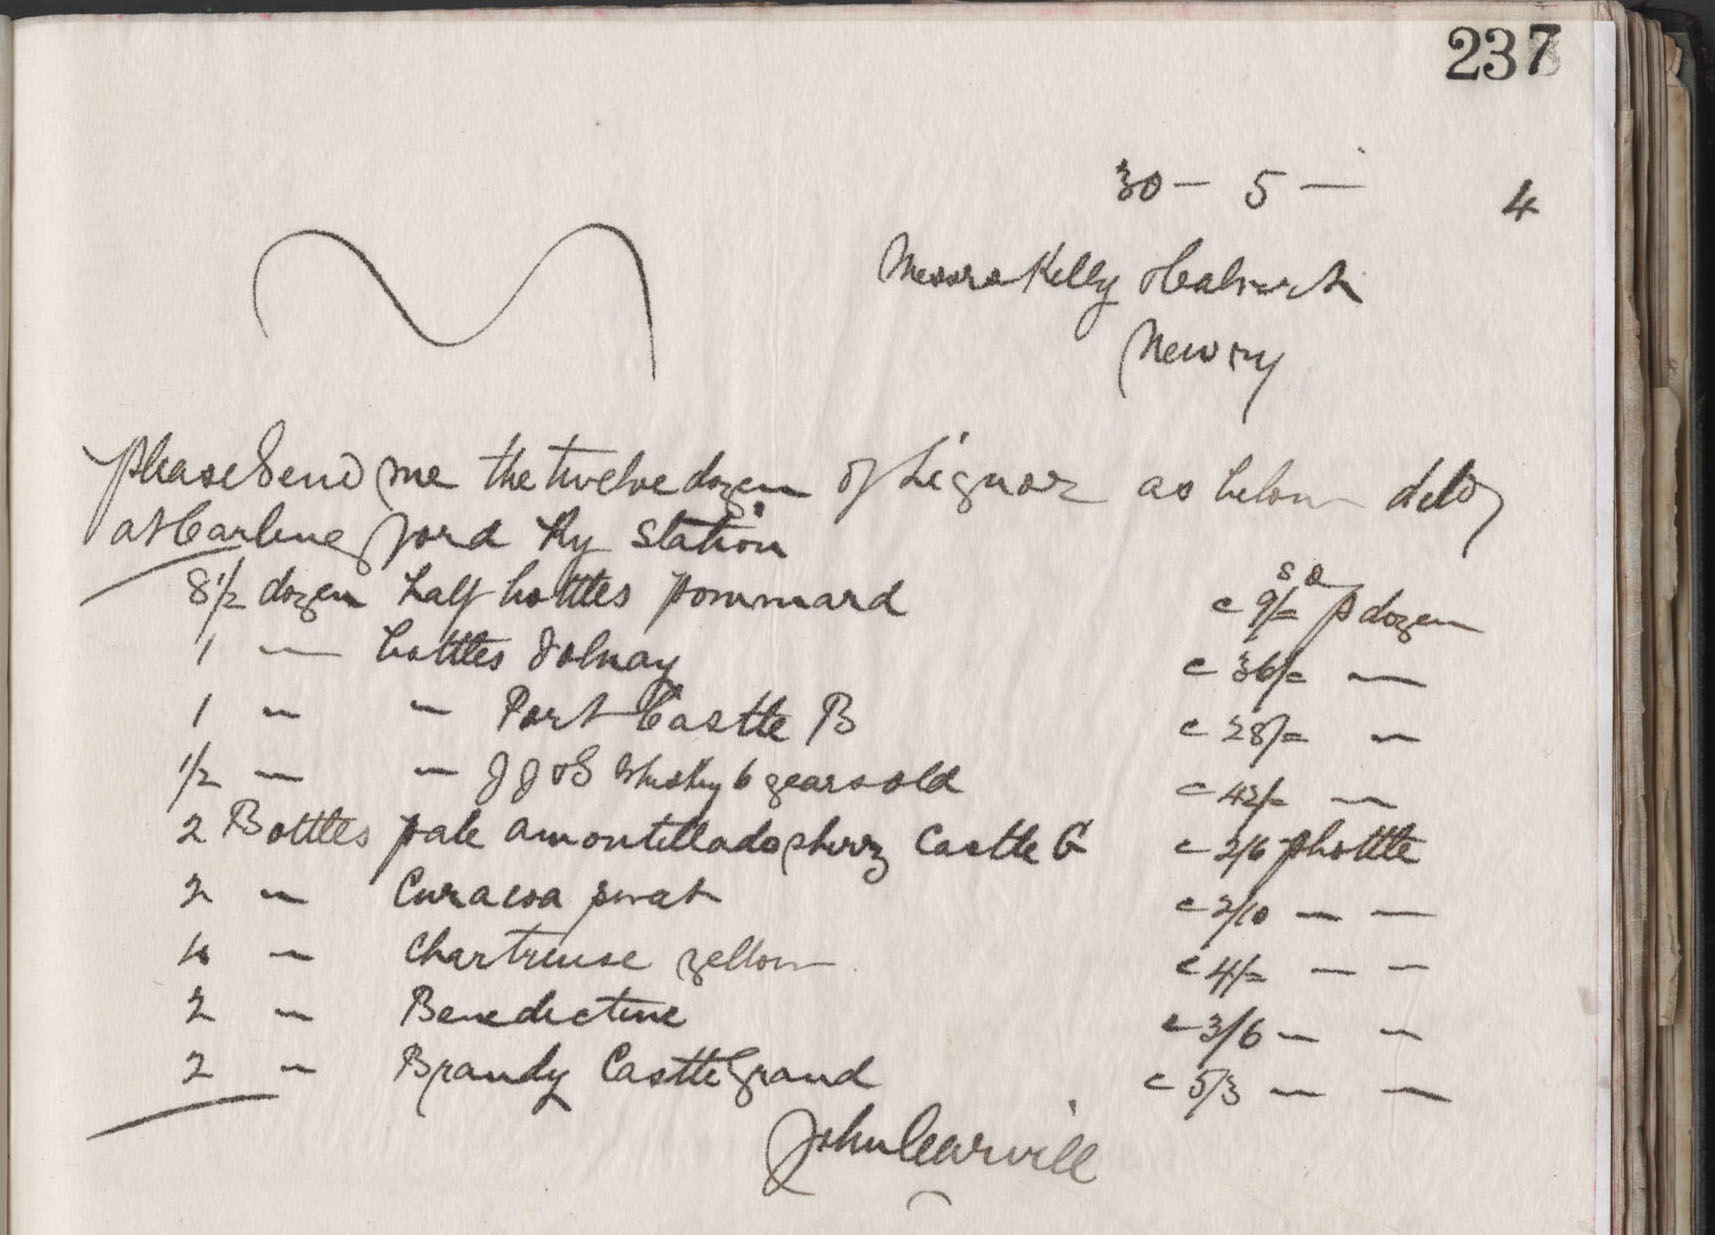 237
30 – 5 – 4
Messrs Kelly &
Newry
please Send me the twelve dozen of Liquor as below deldy
at Carlingford Ry Station
s d
8 1/2 dozen half bottles pommard c 9/= p dozen
1 — bottles Volnay c 36/= —
1 " " Port Castle B c 28/= "
1/2 — " J J & S Whisky 6 years old c 42/= —
2 Bottles pale amontillado sherry Castle G c 2/6 p bottle
2 " Curacoa sweet c 2/10 — —
4 " Chartreuse yellow c 4/= — —
2 " Benedictine c 3/6 — —
2 " Brandy Castle Grand c 5/3 — —
John Cearvill